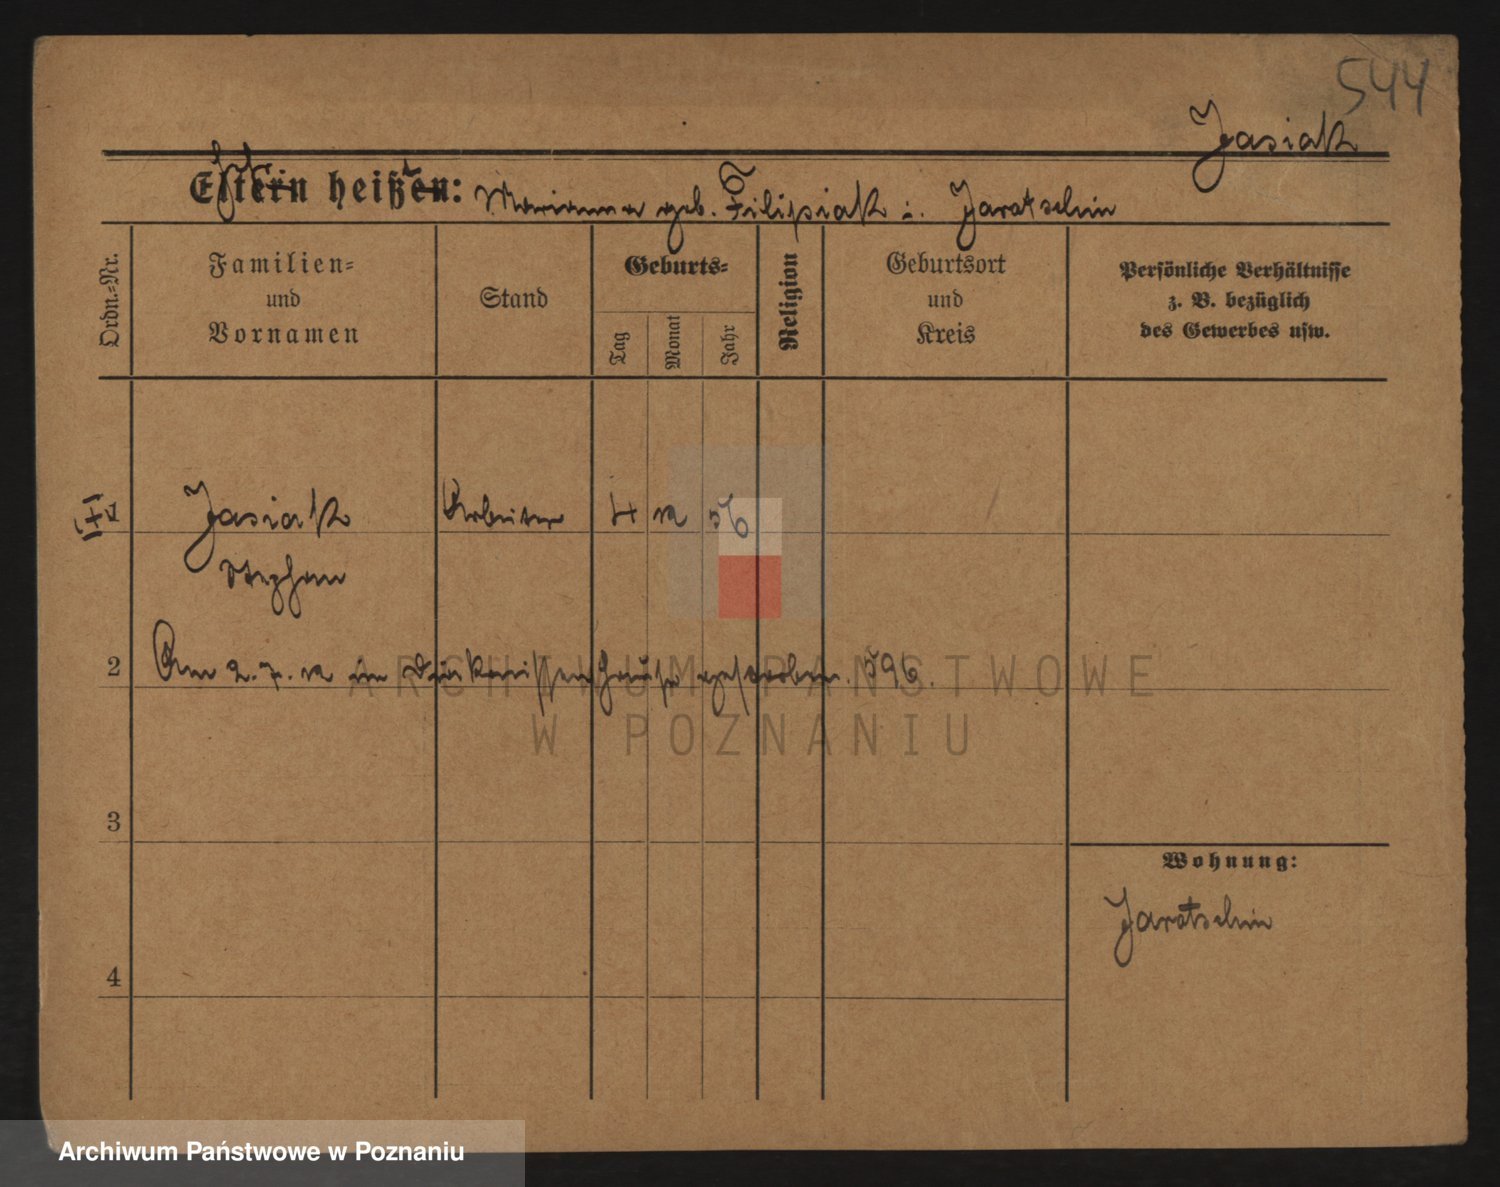 544
Jasiak
Eltern heißen: Marianna geb. Filipiak i. Jarotschin
Ordn.-Nr.
Familien-
und
Vornamen
Stand
Geburts-
Tag
Monat
Jahr
Religion
Geburtsort
und
Kreis
Persönliche Verhältnisse
z. B. bezüglich
des Gewerbes usw.
1 Jasiak Arbeiter 4 12 56
Stephan
2 Am 2. 7. 12 im Diakonissenhause gestorben. 596.
3
Wohnung:
Jarotschin
4
ARCHIWUM PAŃSTWOWE
W POZNANIU
Archiwum Państwowe w Poznaniu